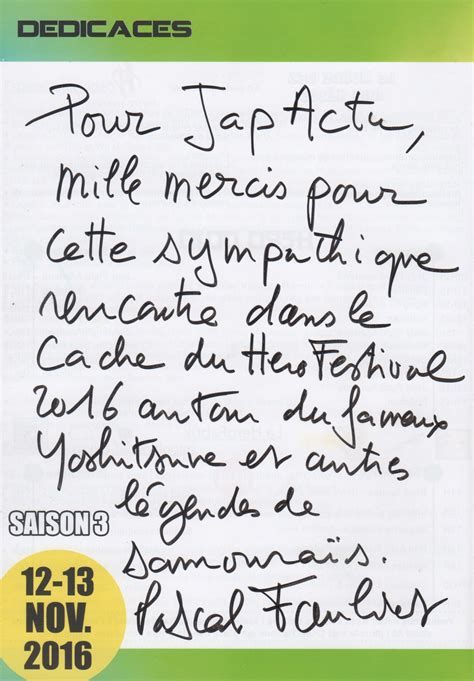 DEDICACES
Pour JapActu,
mille mercis pour
cette sympathique
rencontre dans le
Cache du HeroFestival
2016 autour du fameux
Yoshitsune et autres
légendes de
samouraïs.
Pascal Fauliot
SAISON 3
12-13
NOV.
2016